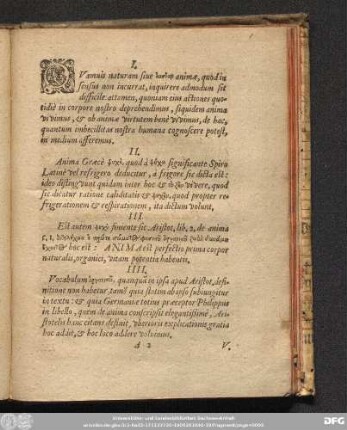 I.
QVamuis naturam siue animæ, quod in
sensus non incurrat, inquirere admodum sit
difficile: attamen, quoniam eius actiones quo-
tidie in corpore nostro deprehendimus, siquidem anima
vivimus, & ob animæ virtutem bene vivimus, de hac,
quantum imbecillitas nostra humana cognoscere potest,
in medium afferemus.
II.
Anima Græcè ψυχὴ, quod à significante Spiro
Latinè vel refrigero deducitur, à frigore sic dicta est:
ideo disting vunt quidam inter hoc & vivere, quod
sic dicatur ratione caliditatis & ψυχὴν, quod propter re-
frigerationem & respirationem, ita dictum volunt.
III.
Est autem ψυχὴ finiente sic Aristot. lib. 2. de anima
c. 1.
hoc est: ANIMA est perfectio prima corporis
naturalis, organici, vitam potentia habentis.
IIII.
Vocabulum quamquam in ipsa apud Aristot. defi-
nitione non habetur, tamen quia statim ab ipso subiungitur
in textu: & quia Germaniæ totius præceptor Philippus
in libello, quem de anima conscripsit elegantissimè, Ari-
stotelis hanc citans definit. vberioris explicationis gratia
hoc addit, & hoc loco addere volumus.
A 2 V.